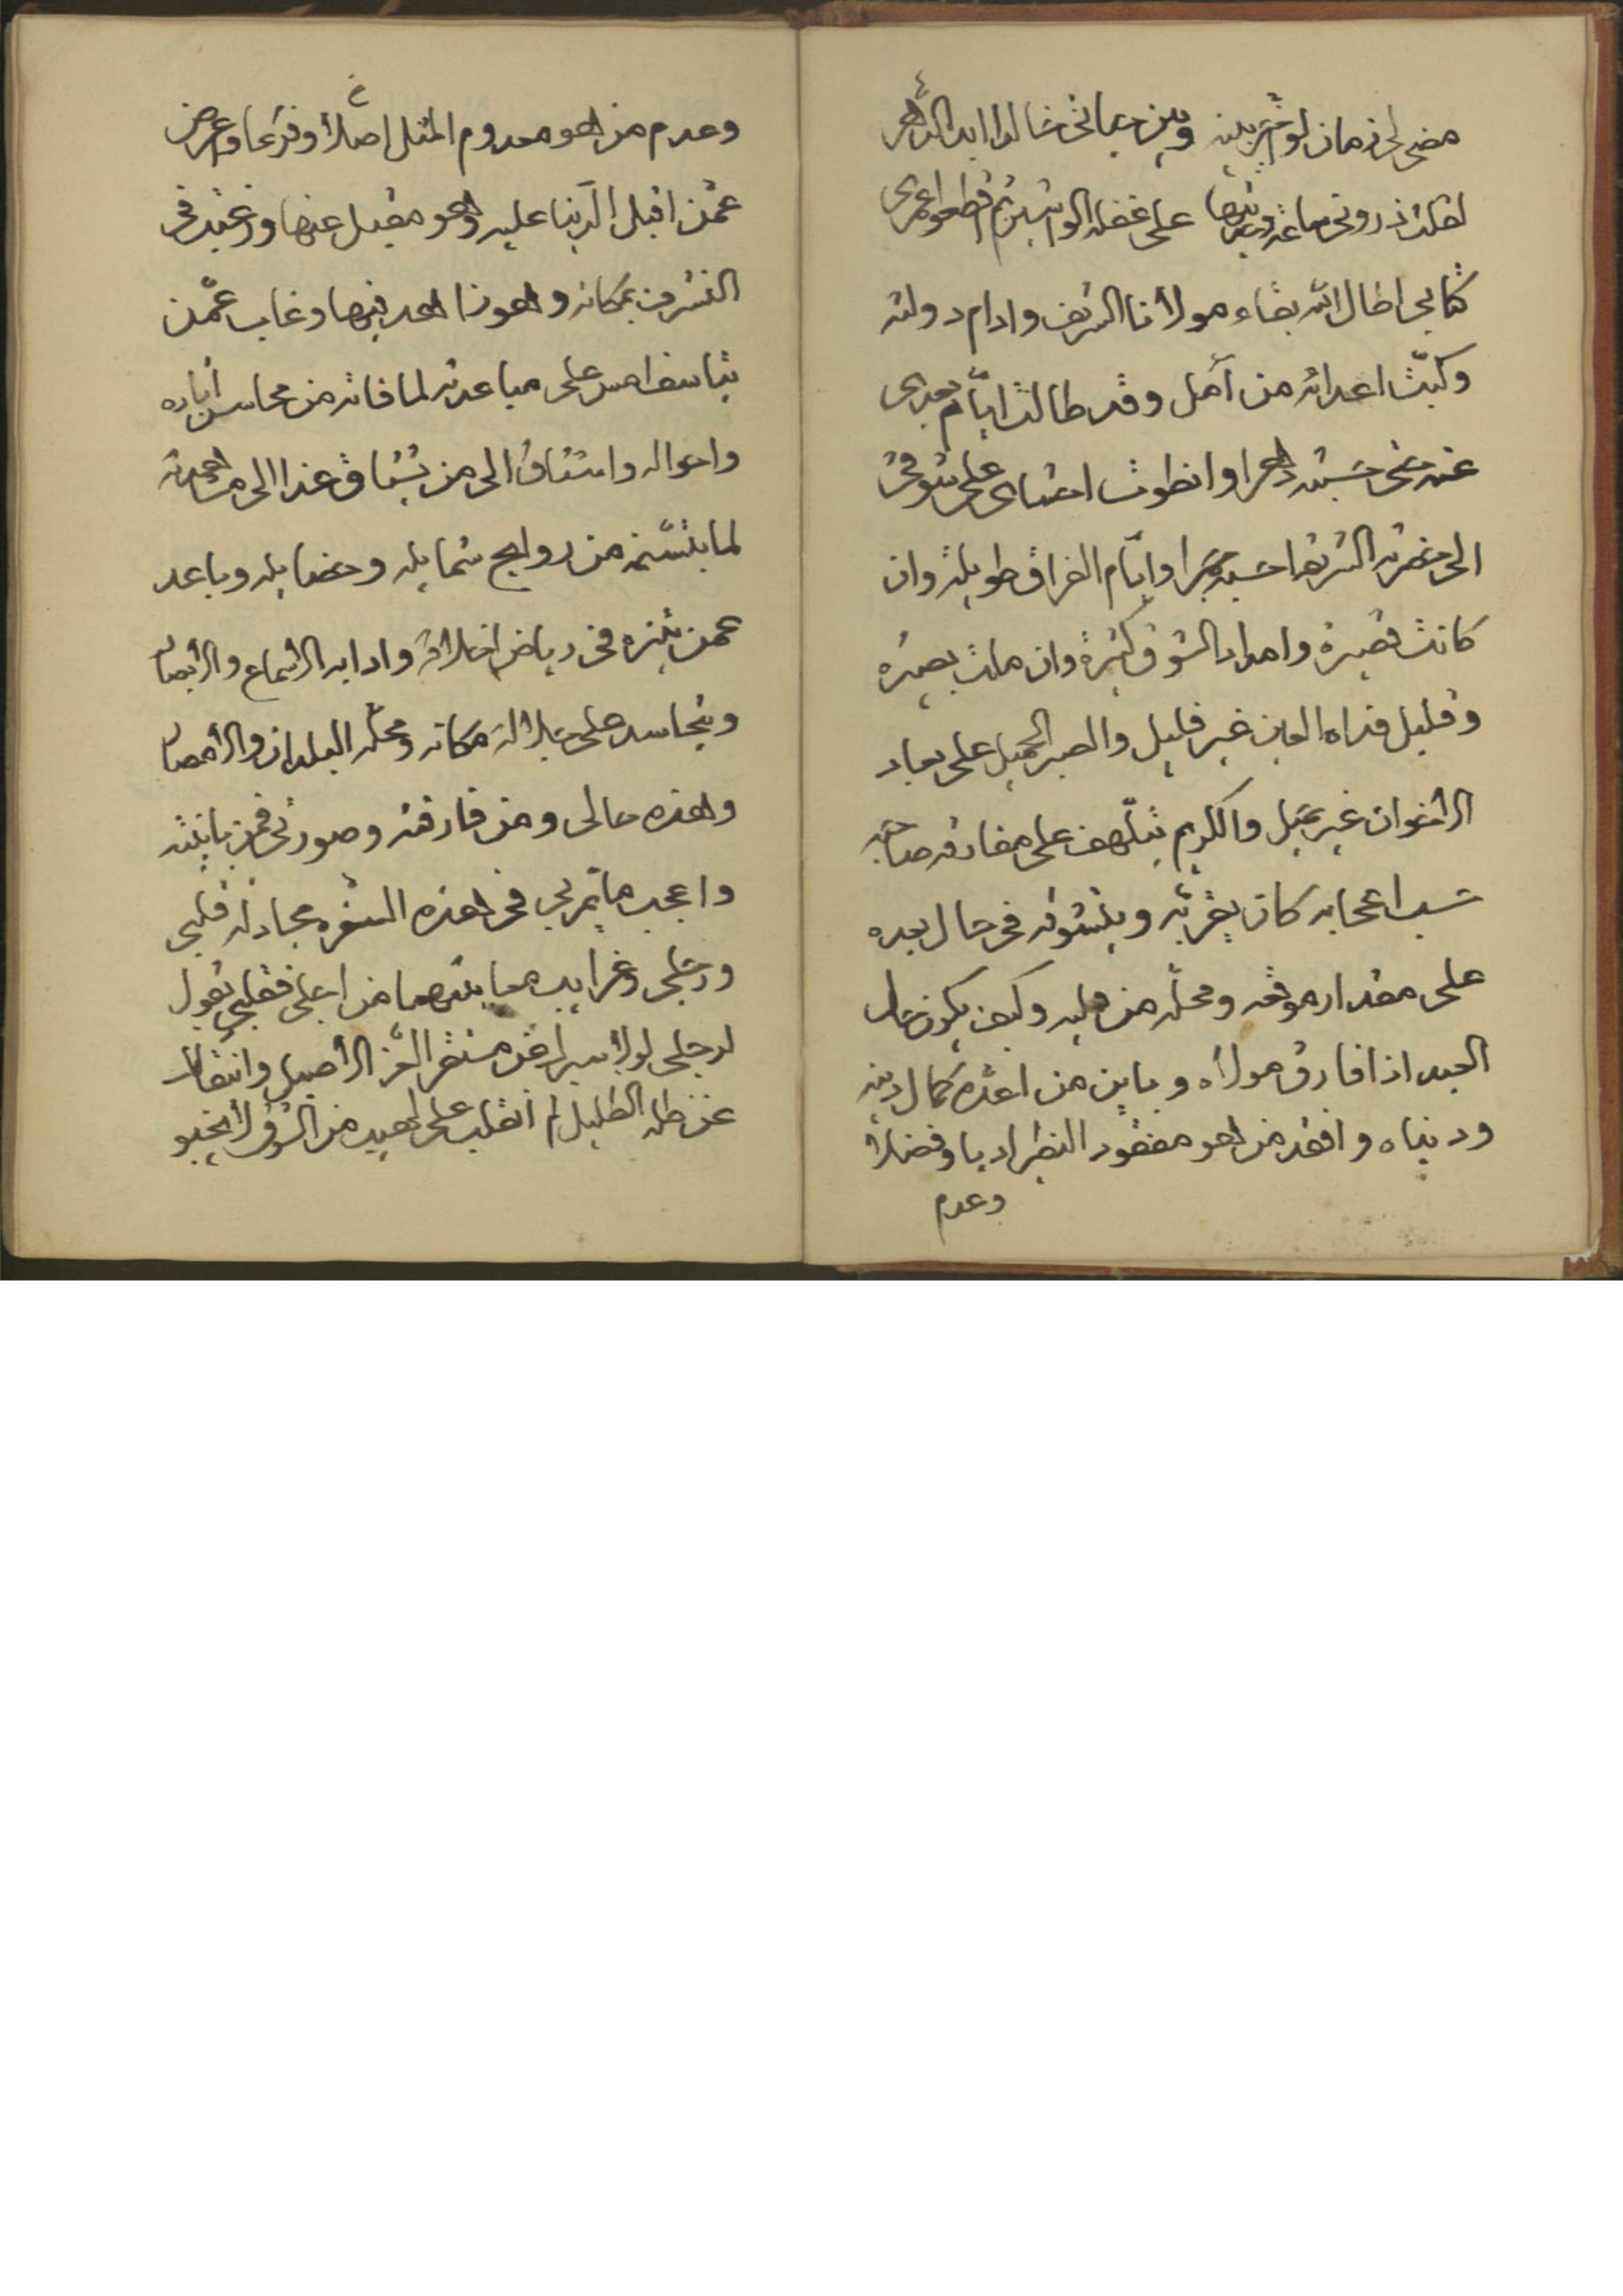 مضى لي زمان لو خيّر بينه وبين حياتي خالدا ابد الدهر
لقلت ذروني ساعة وحديثها على غفلة الواشين ثم اقطعوا عمري
كتابي اطال الله بقاء مولانا الشريف وادام دولته
وكبّت اعدائه من آمل وقد طالت ايّام بعدي
عنه حتى حسبته دهرا وانطوت احشاي على شوقي
الى حضرته الشريفة حسبته جمرا وايّام الفراق طويلة وان
كانت قصيرة وامداد الشوق كثيرة وان ملت يصيره
وقليل قذاه العين غير قليل والصبر الجميل على بعاد
الاخوان غير جميل والكريم يتلّهف على مفارقة صاحبه
حسب اعجابه كان بقربه ويتشوقه في حال بعده
على مقدار موقعه ومحلّه من قلبه وكيف يكون حال
العبد اذا فارق مولاه وباين من اعدّه كمال دينه
ودنياه وافقد من هو مفقود النظير ادبا وفضلا
وعدم
وعدم من هو معدوم المثل اصلا وفرعا واعرض
عمّن اقبل الدّنيا عليه وهو مقبل عنها ورغبت في
التشرف بمكانه وهو زاهد فيها وغاب عمّن
يتاسف امس على مباعدته لما فاته من محاسن آياده
واحواله واشتاق الى من يشتاق غدا الى مشاهدته
لما يتنسّمه من روايح شمايله وخصايله وباعد
عمن يتنزه في رياض اخلاقه وادابه الاسماع والابصار
ويتحاسد على جلالة مكانه ومحلّه البلدان والامصار
وهذه حالى ومن فارقته وصورتي فمن باينته
واعجب ما يمّر بي في هذه السفره مجادلة قلبي
ورجلي وغرايب معاتبتهما من اجلي فقلبي يقول
لرجلي لولا سيرك عن مستقر العّز الاصيل وانتقالك
عن ظله الظليل لم اتقلب على لهيب من الشوق لا يخبو